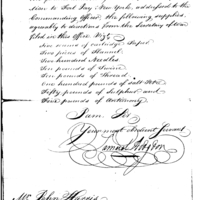 Lines to Fort Jay, New York, addressed to the
Commanding Officer, the following supplies,
agreeably to directions from the Secretary of War
filed in this Office Viz:
Two reams of Cartridge Paper
Two pieces of Flannel
Two hundred Needles
Ten pounds of Twine
Ten pounds of Thread
One hundred pounds of Salt Petre
Fifty pounds of Sulphur and
Five pounds of Antimony
I am Sir
Your most Obedient Servant
Samuel Hodgdon
Mr. John Harris